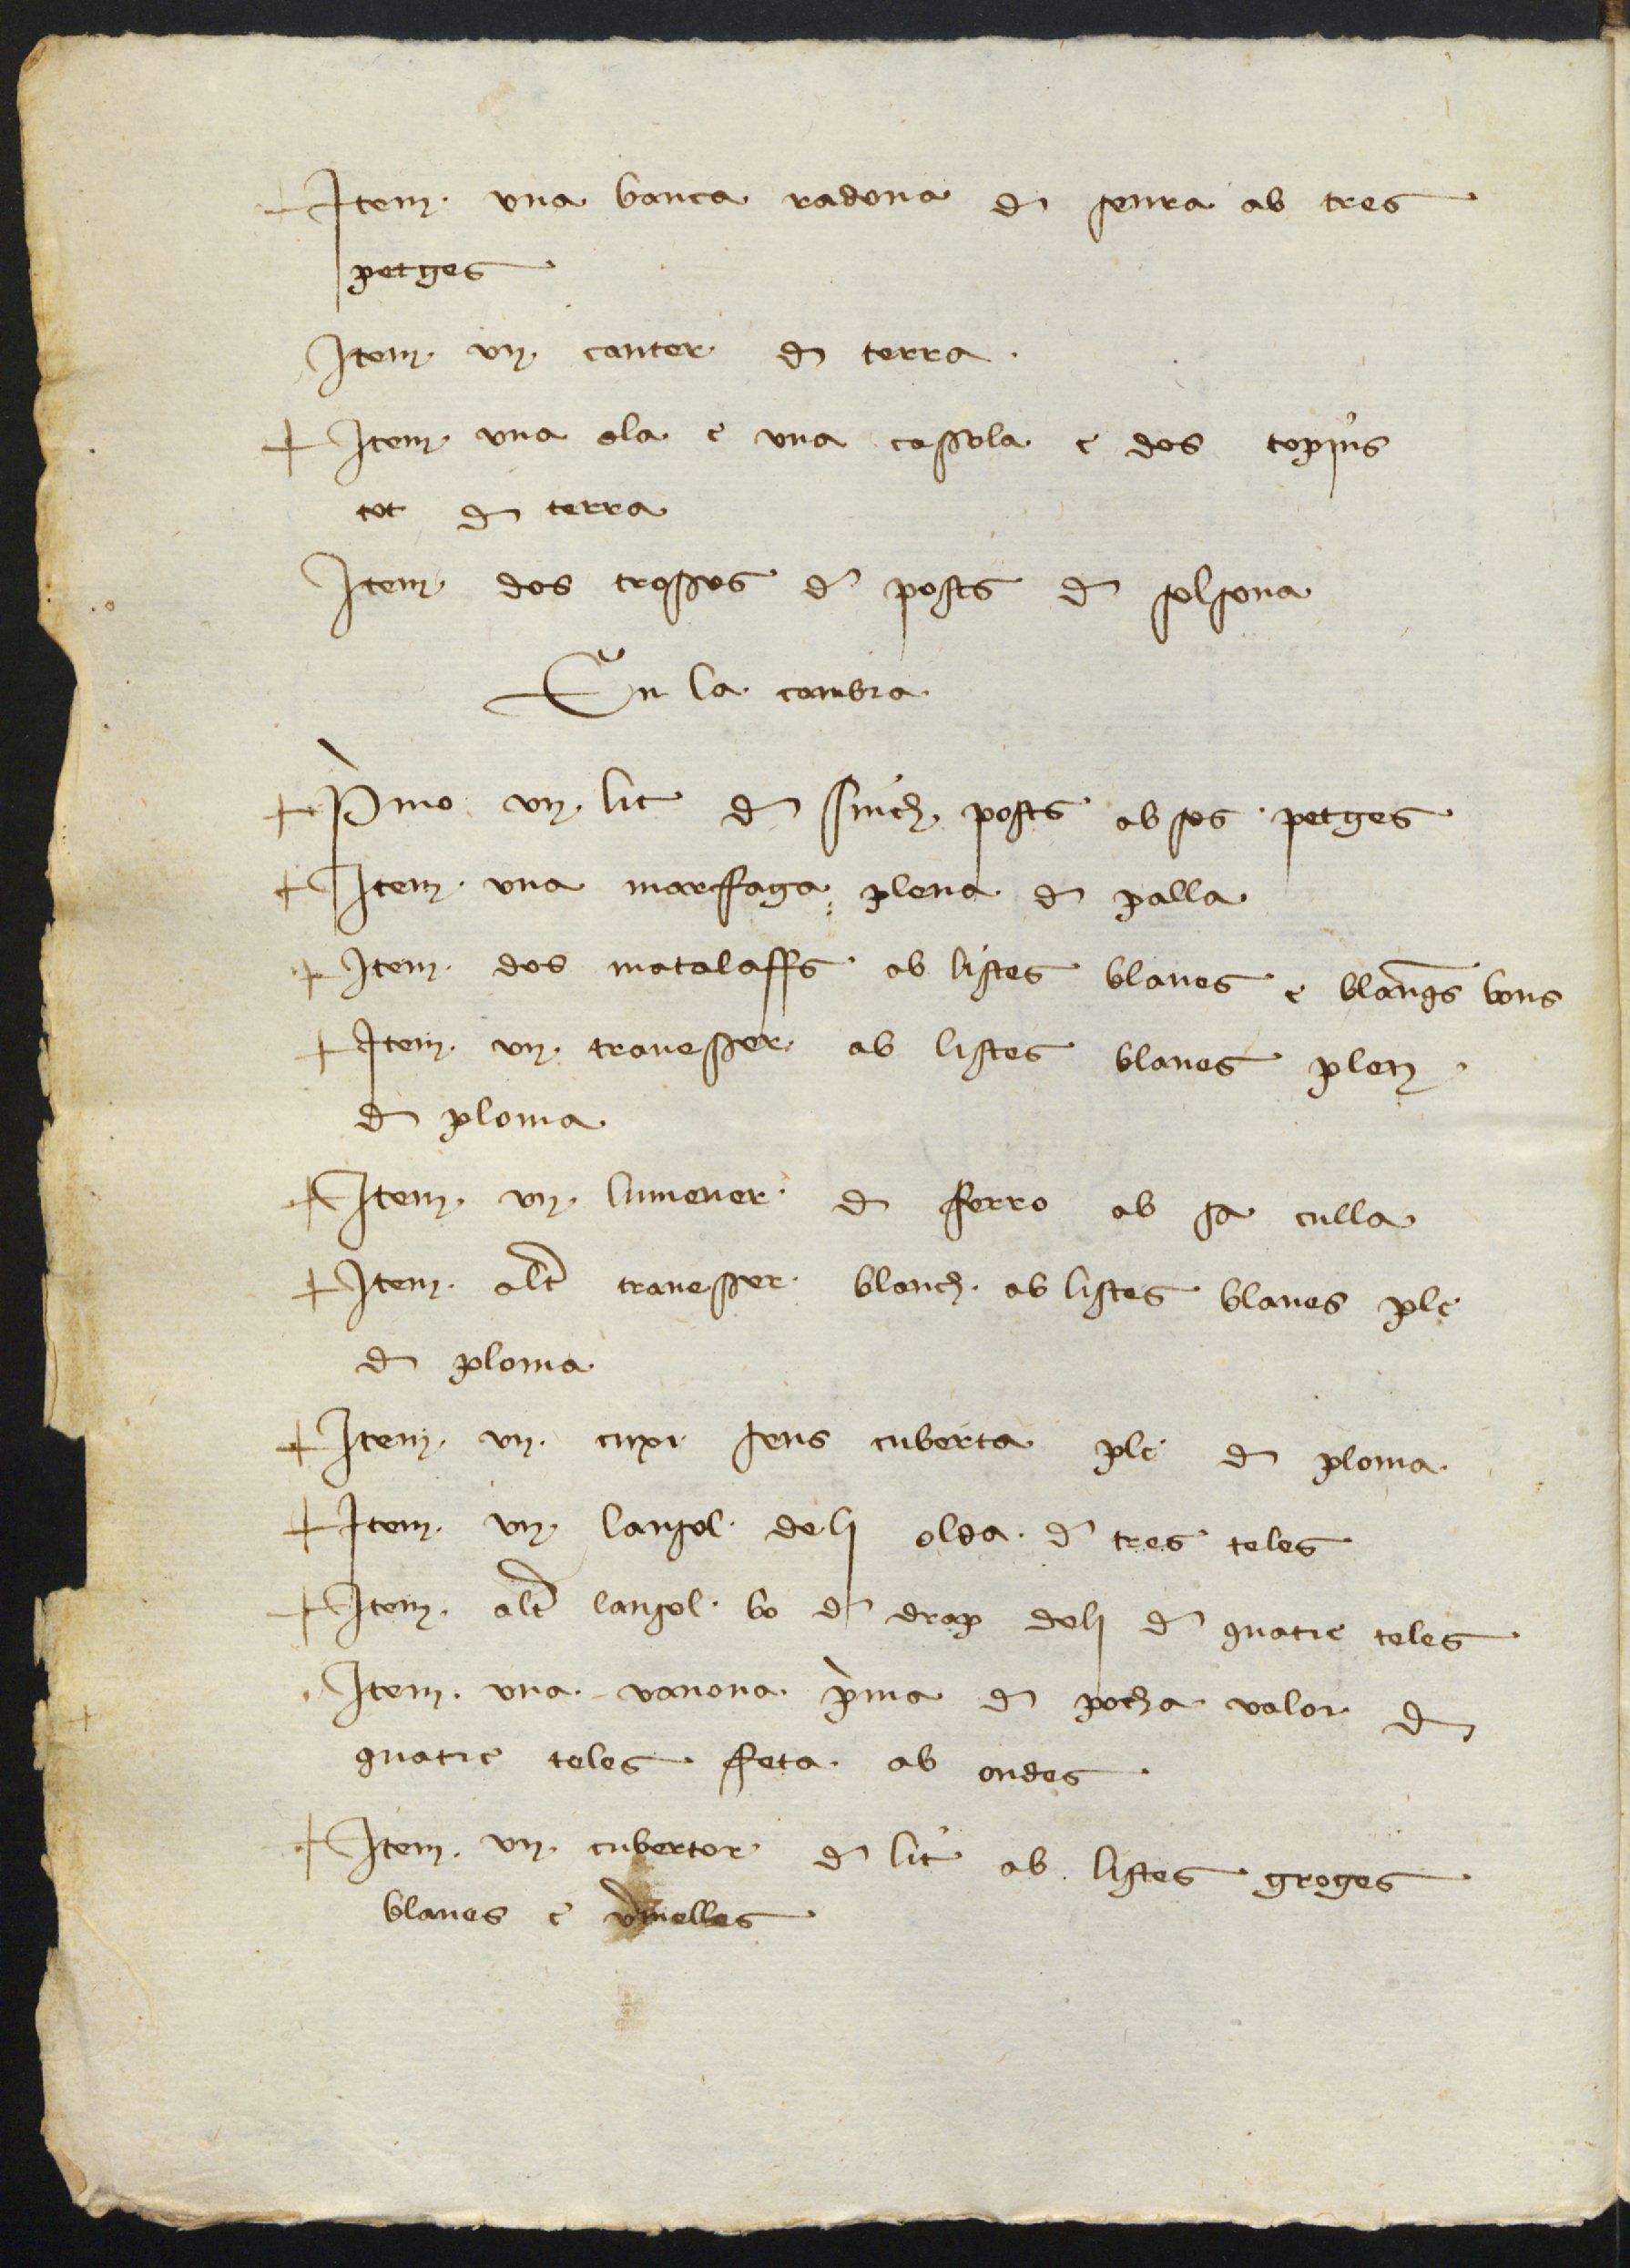 + Item una banca radona de senra ab tres
petges
Item un canter de terra
+ Item una ola e una cassola e dos topins
tot de terra
Item dos trossos de posts de solsona
En la cambra
+ Primo un lit de sinch posts ab sos petges
+ Item una marffaga plena de palla
+ Item dos matalaffs ab listes blaues e blanqs bons
+ Item un trauesser ab listes blaues plen
de ploma
+ Item un lumener de fferro ab sa culla
+ Item altre trauesser blanch ab listes blaues ple
de ploma
+ Item un cuxi sens cuberta ple de ploma
+ Item un lansol de li olda de tres teles
+ Item altre lansol bo de drap de li de quatre teles
Item una vanoua prima de pocha valor de
quatre teles ffeta ab ondes
+ Item un cubertor de lit ab listes groges
blaues e vermelles